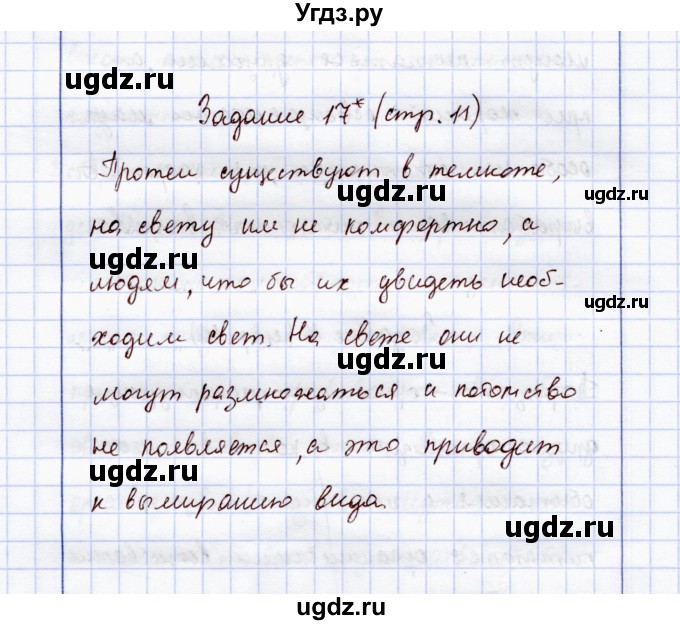 Угдз.ру
ugdz.ru
Задание 17* (стр. 11)
ugdz.ru
Протеи существуют в темноте,
ugdz.ru ugdz.ru
на свету им не комфортно, а
ugdz.ru
людям, что бы их увидеть необ-
ugdz.ru
ходим свет. На свете они не
ugdz.ru
могут размножаться и потомство
не появляется, а это приводит
ugdz.ru ugdz.ru
к вымиранию вида.
ugdz.ru
ugdz.ru